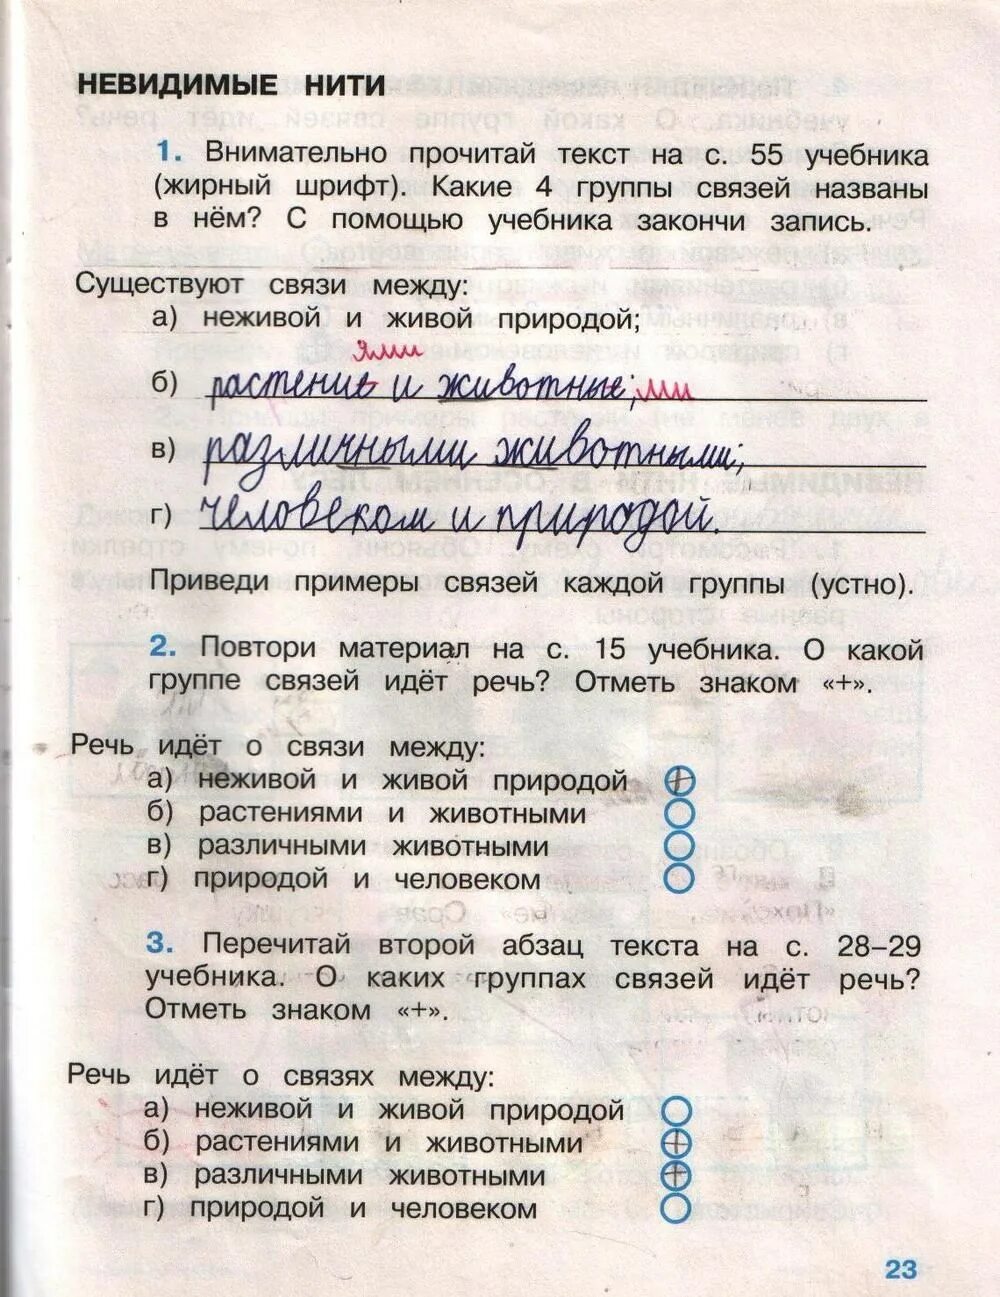 НЕВИДИМЫЕ НИТИ
1. Внимательно прочитай текст на с. 55 учебника
(жирный шрифт). Какие 4 группы связей названы
в нём? С помощью учебника закончи запись.
Существуют связи между:
а) неживой и живой природой;
ями
б) растение и животные; ми
в) различными животными;
г) человеком и природой.
Приведи примеры связей каждой группы (устно).
2. Повтори материал на с. 15 учебника. О какой
группе связей идёт речь? Отметь знаком «+».
Речь идёт о связи между:
а) неживой и живой природой +
б) растениями и животными
в) различными животными
г) природой и человеком
3. Перечитай второй абзац текста на с. 28–29
учебника. О каких группах связей идёт речь?
Отметь знаком «+».
Речь идёт о связях между:
а) неживой и живой природой
б) растениями и животными +
в) различными животными +
г) природой и человеком
23